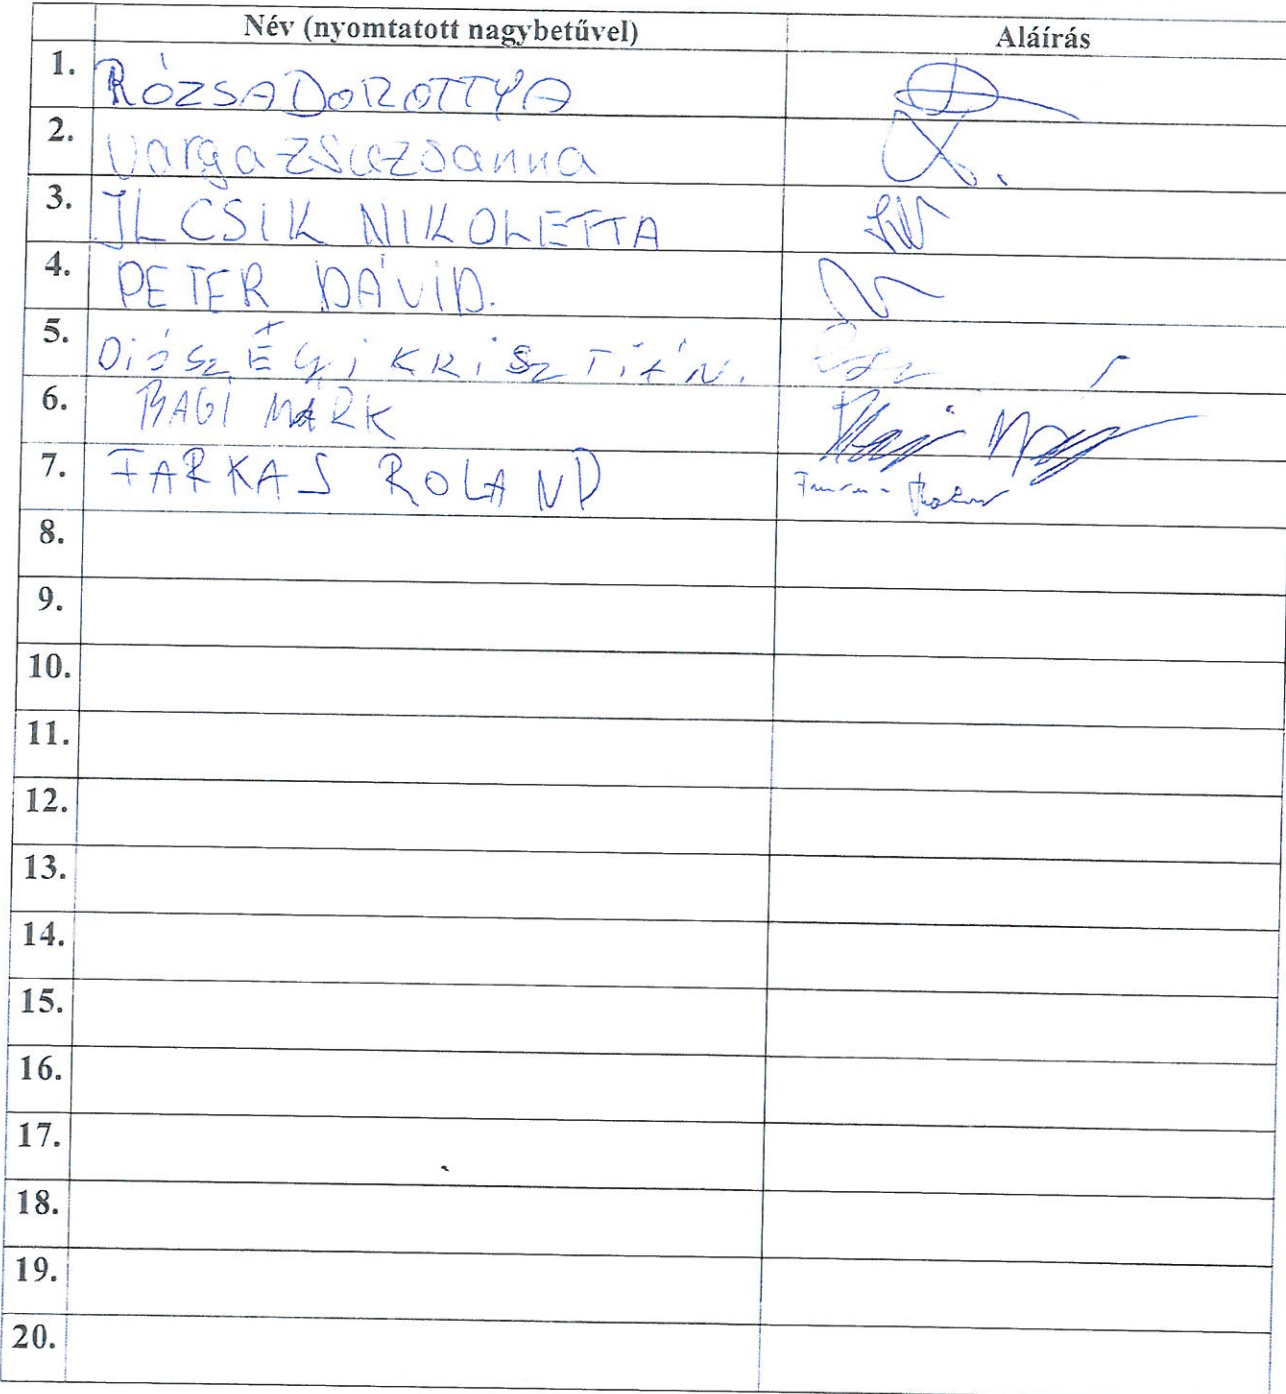 Név (nyomtatott nagybetűvel) Aláírás
1. RÓZSA DOROTTYA
2. Varga Zsuzsanna
3. ILCSIK NIKOLETTA
4. PETER DÁVID.
5. DiószEgi KRiSzTiÁN.
6. BAGI MARK
7. FARKAS ROLAND
8.
9.
10.
11.
12.
13.
14.
15.
16.
17.
18.
19.
20.